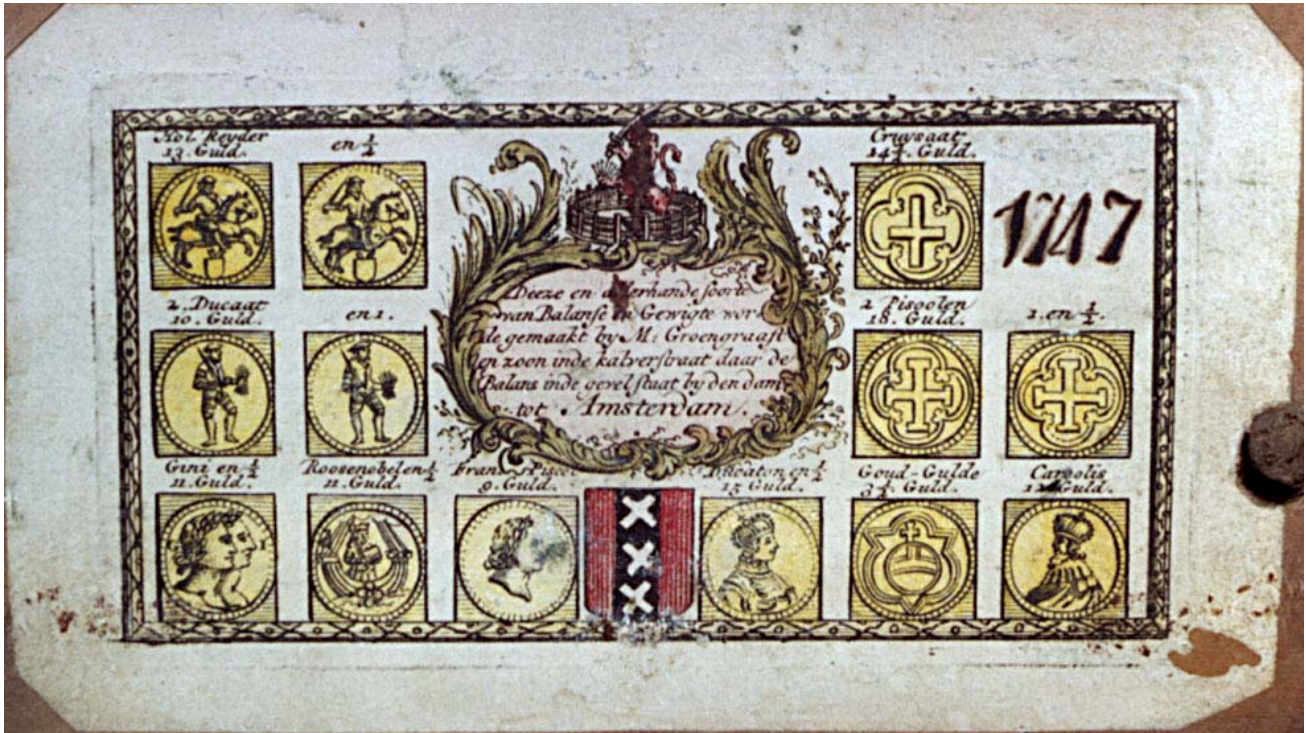 Hol Reyder
13. Guld.
en ½
Cruysaat
14½. Guld.
1747
2. Ducaat
10. Guld.
en 1.
Deeze en allerhande soorte
van Balanse en Gewigte wor
de gemaakt by M: Groengraaft
en zoon inde kalverstraat daar de
Balans inde gevel staat by den dam
tot Amsterdam.
2 Pisoolen
18. Guld.
1. en ½.
Gini en ½
11. Guld.
Roosenobel en ½
11. Guld.
Frans
9. Guld.
Ducaton en ½
15 Guld.
Goud-Gulde
Guld.
Carolis
Guld.